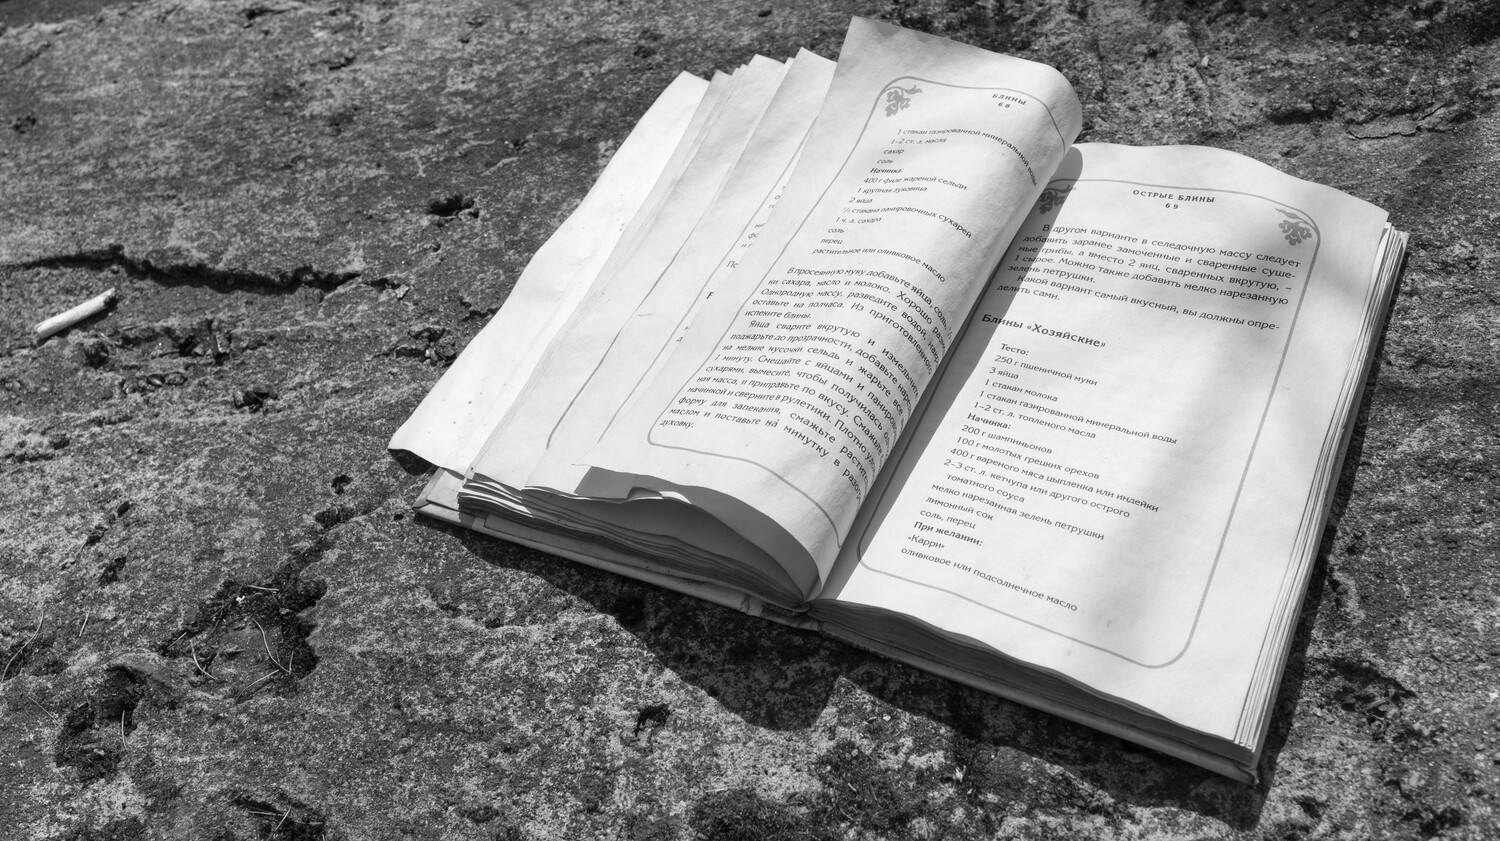 БЛИНЫ
68
1 стакан газированной минеральной воды
1–2 ст. л. масла
сахар
соль
Начинка:
400 г филе жареной сельди
1 крупная луковица
2 яйца
½ стакана панировочных сухарей
1 ч. л. сахара
соль
перец
растительное или оливковое масло
В просеянную муку добавьте яйца, соль,
ки сахара, масло и молоко. Хорошо
Однородную массу, разведите водой,
оставьте на полчаса. Из приготовленного
испеките блины.
Яйца сварите вкрутую и
поджарьте до прозрачности, добавьте
на мелкие кусочки сельдь и жарьте все
1 минуту. Смешайте с яйцами и
сухарями, вымесите, чтобы получилась
ная масса, и приправьте по вкусу.
начинкой и сверните в рулетики. Плотно
форму для запекания, смажьте
маслом и поставьте на минутку в
духовку.
ОСТРЫЕ БЛИНЫ
69
В другом варианте в селедочную массу следует
добавить заранее замоченные и сваренные суше-
ные грибы, а вместо 2 яиц, сваренных вкрутую, –
1 сырое. Можно также добавить мелко нарезанную
зелень петрушки.
Какой вариант самый вкусный, вы должны опре-
делить сами.
Блины «Хозяйские»
Тесто:
250 г пшеничной муки
3 яйца
1 стакан молока
1 стакан газированной минеральной воды
1–2 ст. л. топленого масла
Начинка:
200 г шампиньонов
100 г молотых грецких орехов
400 г вареного мяса цыпленка или индейки
2–3 ст. л. кетчупа или другого острого
томатного соуса
мелко нарезанная зелень петрушки
лимонный сок
соль, перец
При желании:
«Карри»
оливковое или подсолнечное масло